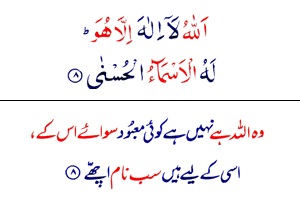 اَللّٰهُ لَاۤ اِلٰهَ اِلَّا هُوَ ؕ
لَهُ الْاَسْمَآءُ الْحُسْنٰی ۝۸
وہ اللہ ہے نہیں ہے کوئی معبُود سوائے اس کے،
اسی کے لیے ہیں سب نام اچھّے ۝۸